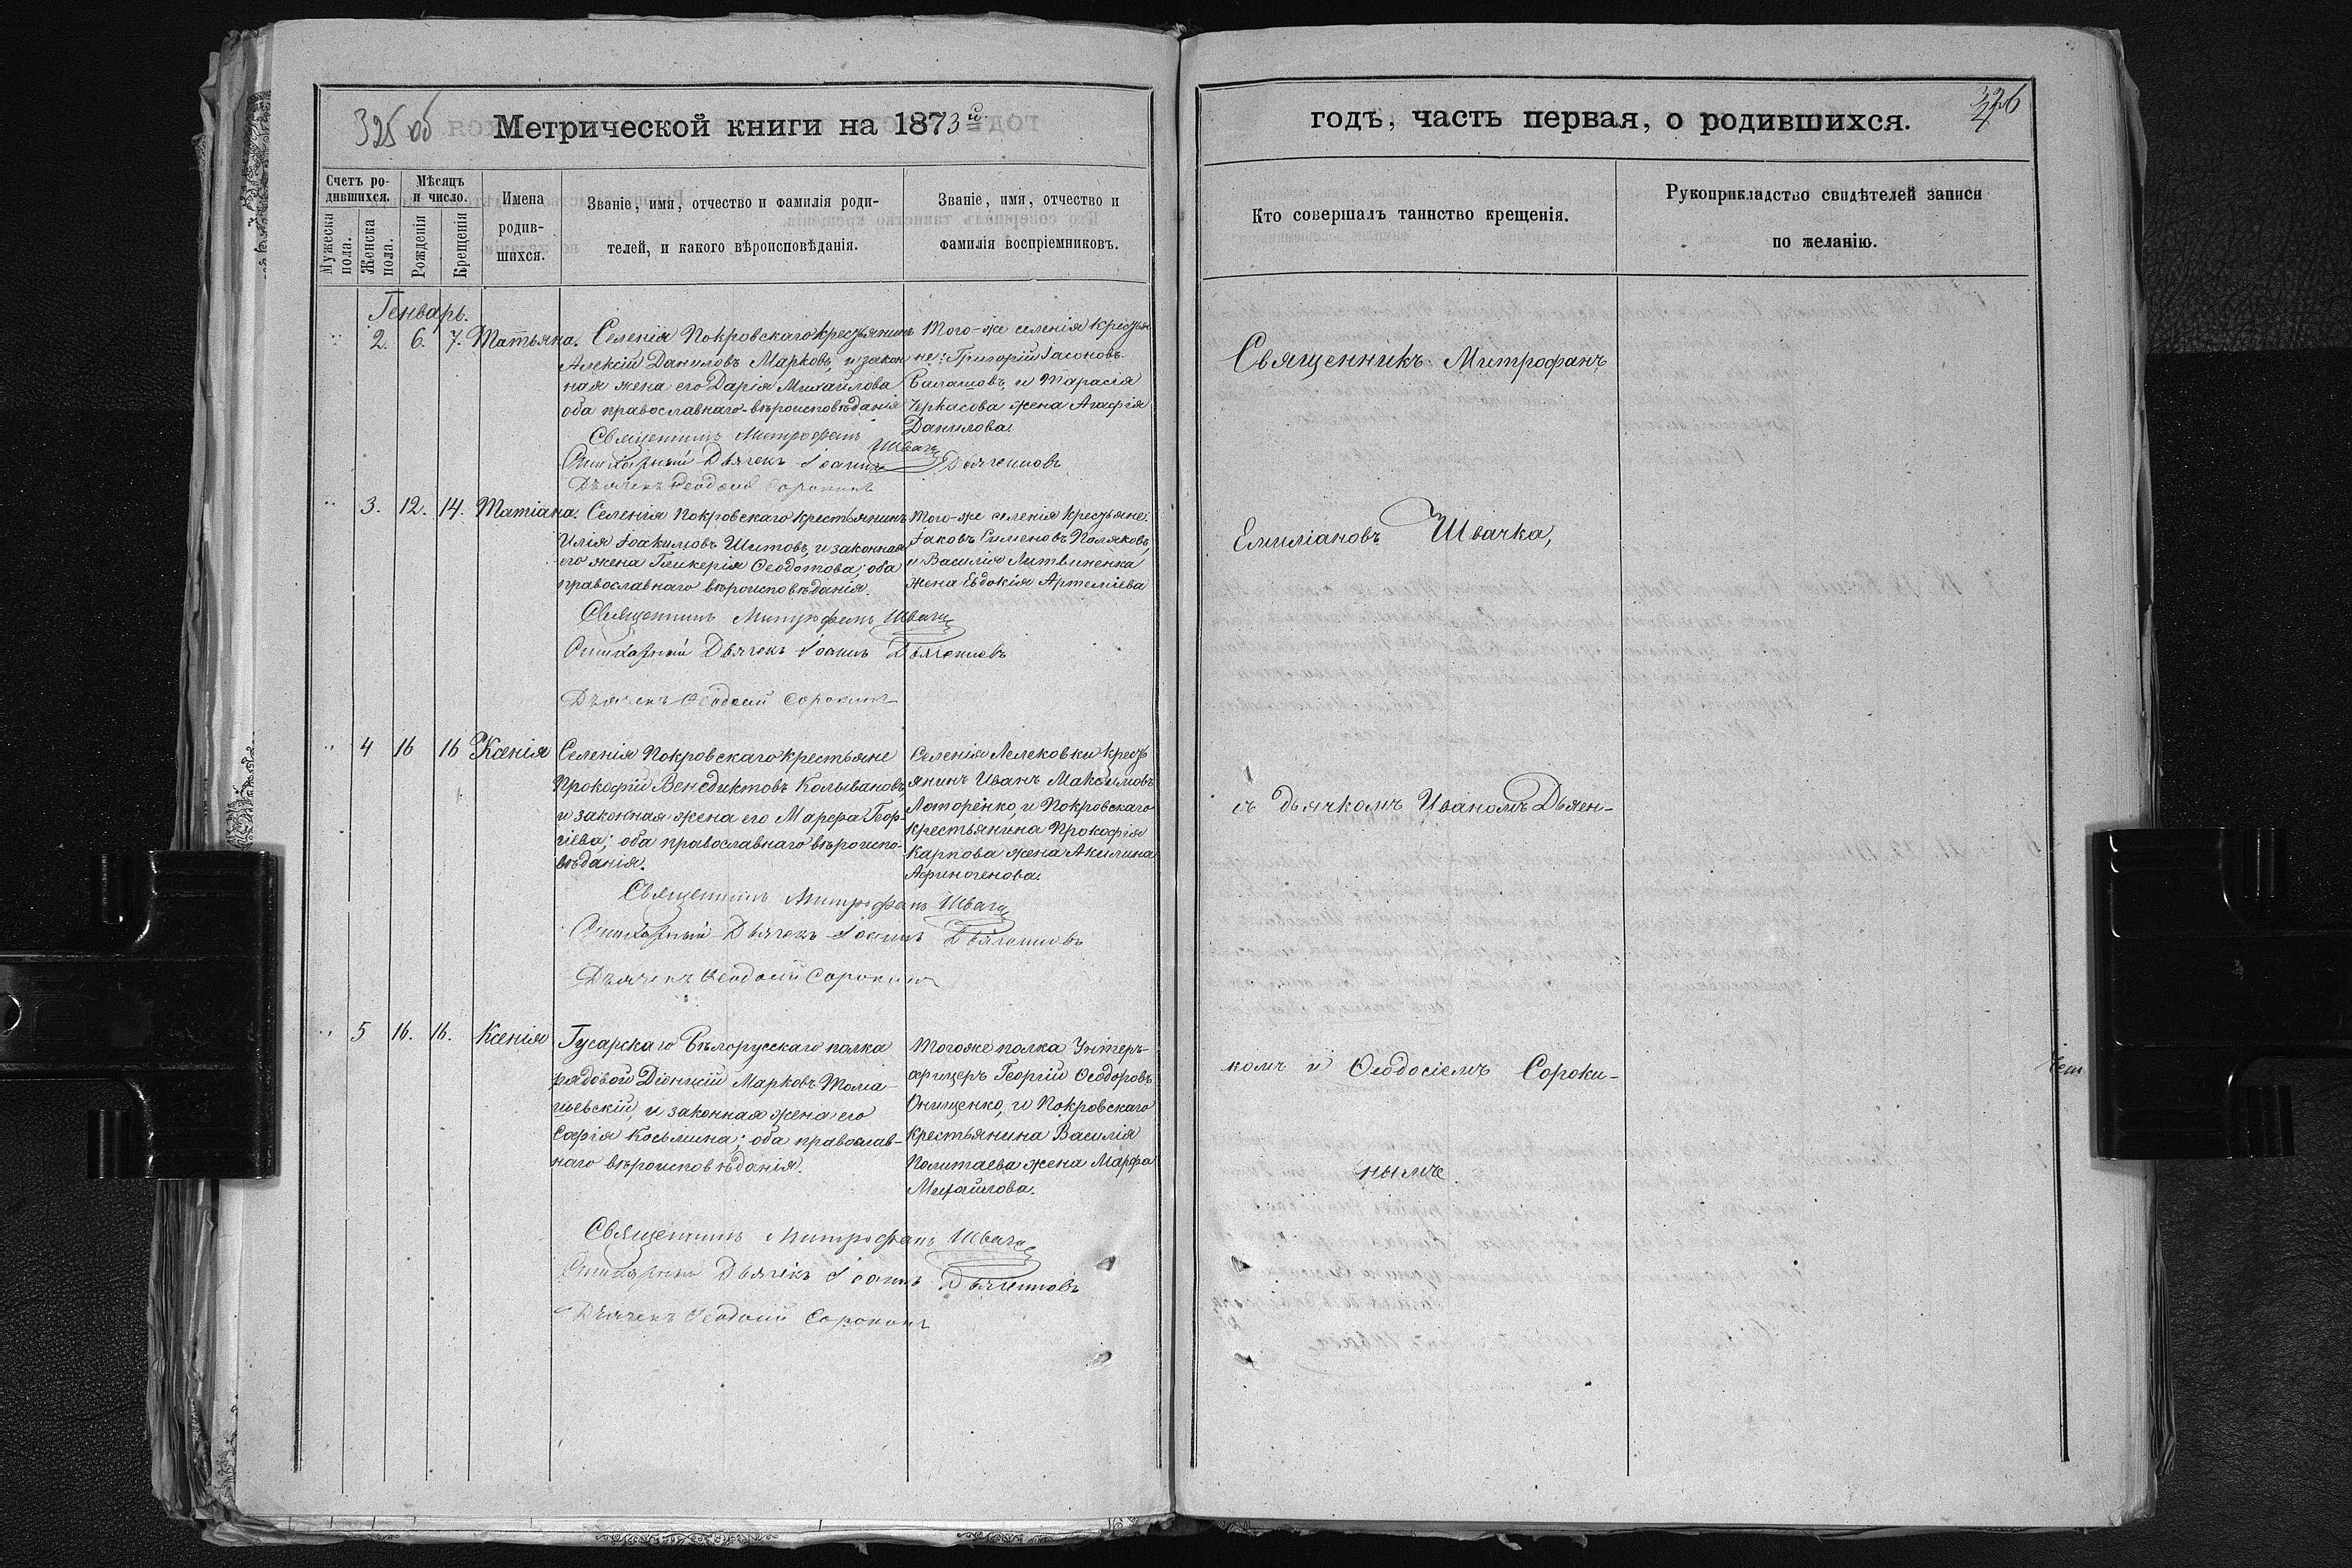 325 об
Метрической книги на 1873й
Счетъ ро-
дившихся.
Мужеска пола.
Женска пола.
Мѣсяцъ
и число.
Рожденія
Крещенія
Имена
родив-
шихся.
Званіе, имя, отчество и фамилія роди-
телей, и какого вѣроисповѣданія.
Званіе, имя, отчество и
фамилія воспріемниковъ.
Генварь.
2. 6. 7. Татьяна.
Селенія Покровскаго крестьянинъ
Алексій Даниловъ Марковъ, и закон
ная жена его Дарія Михайлова
оба православнаго вѣроисповѣданія
Того-же селенія кресть
не: Григорій Іасоновъ
Балашовъ, и Тарасія
Черкасова жена Агафія
Данилова.
Священникъ Митрофанъ Швачка
Стихарный Дьячекъ Іоаннъ Дьяченковъ
Дьячекъ Ѳеодосій Сорокинъ
3. 12. 14. Татіана.
Селенія Покровскаго крестьянинъ
Илія Іоакимовъ Шитовъ, и законная
его жена Гликерія Ѳеодотова; оба
православнаго вѣроисповѣданія.
Того-же селенія крестьяне:
Іаковъ Симеоновъ Поляковъ,
и Василія Литвиненка
жена Евдокія Артеміева
Священникъ Митрофанъ Швачка
Стихарный Дьячекъ Іоаннъ Дьяченковъ
Дьячекъ Ѳеодосій Сорокинъ
4 16 16 Ксенія
Селенія Покровскаго крестьяне
Прокофій Венедиктовъ Колывановъ
и законная жена его Марфа Геор-
гіева; оба православнаго вѣроиспо-
вѣданія.
Селенія Лелековки кресть
янинъ Иванъ Максимовъ
и Покровскаго
крестьянина Прокофія
Карпова жена Акилина
Афиногенова.
Священникъ Митрофанъ Швачка
Стихарный Дьячекъ Іоаннъ Дьяченковъ
Дьячекъ Ѳеодосій Сорокинъ
5 16. 16. Ксенія
Гусарскаго Бѣлорусскаго полка
рядовой Діонисій Марковъ Тома-
шевскій, и законная жена его
Софія Косьмина; оба православ-
наго вѣроисповѣданія.
Тогоже полка Унтеръ-
офицеръ Георгій Ѳеодоровъ
Онищенко, и Покровскаго
крестьянина Василія
Полтаева жена Марфа
Михайлова.
Священникъ Митрофанъ Швачка
Стихарный Дьячекъ Іоаннъ Дьяченковъ
Дьячекъ Ѳеодосій Сорокинъ
326
4
годъ, часть первая, о родившихся.
Кто совершалъ таинство крещенія.
Рукоприкладство свидѣтелей записи
по желанію.
Священникъ Митрофанъ
Емиліановъ Швачка,
съ дьячкомъ Иваномъ Дьячен-
комъ и Ѳеодосіемъ Сороки-
нымъ.